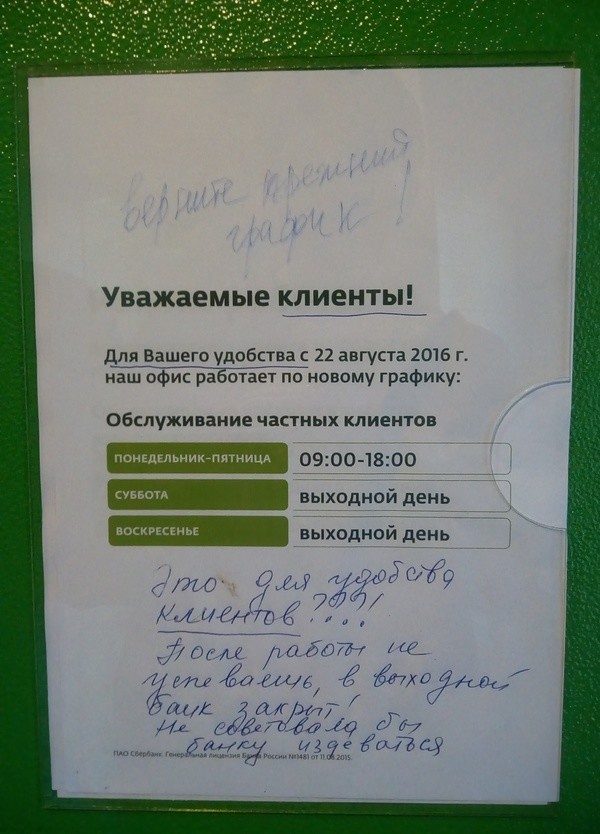 верните прежний
график!
Уважаемые клиенты!
Для Вашего удобства с 22 августа 2016 г.
наш офис работает по новому графику:
Обслуживание частных клиентов
ПОНЕДЕЛЬНИК-ПЯТНИЦА 09:00-18:00
СУББОТА выходной день
ВОСКРЕСЕНЬЕ выходной день
Это для удобства
клиентов????!
После работы не
успеваешь, в выходной
банк закрыт!
Не советовала бы
банку издеваться
ПАО Сбербанк. Генеральная лицензия Банка России №1481 от 11.08.2015.